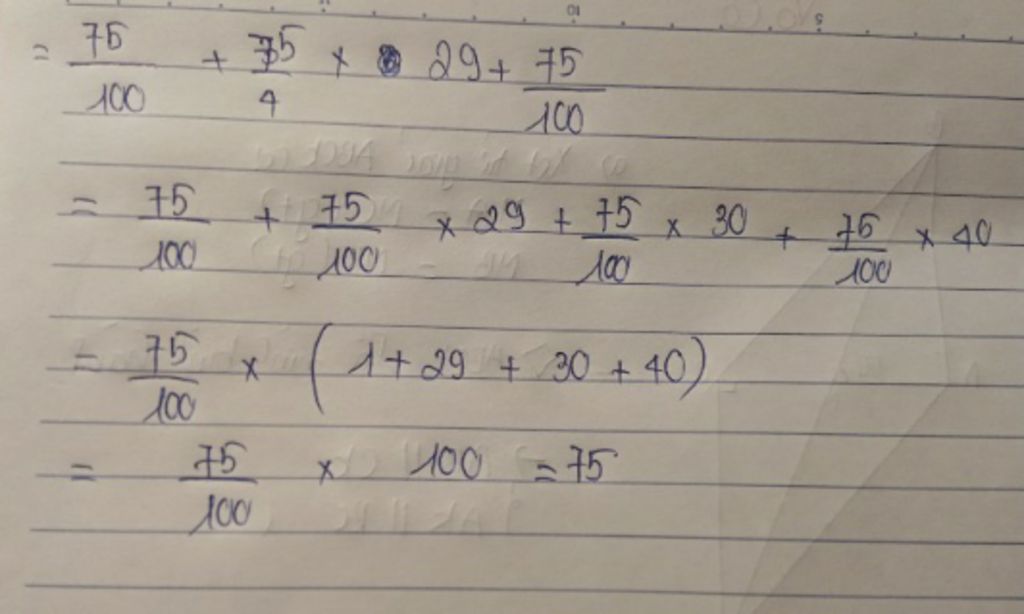 = 75/100 + 75/4 × 29 + 75/100
= 75/100 + 75/100 × 29 + 75/100 × 30 + 75/100 × 40
= 75/100 × (1 + 29 + 30 + 40)
= 75/100 × 100 = 75